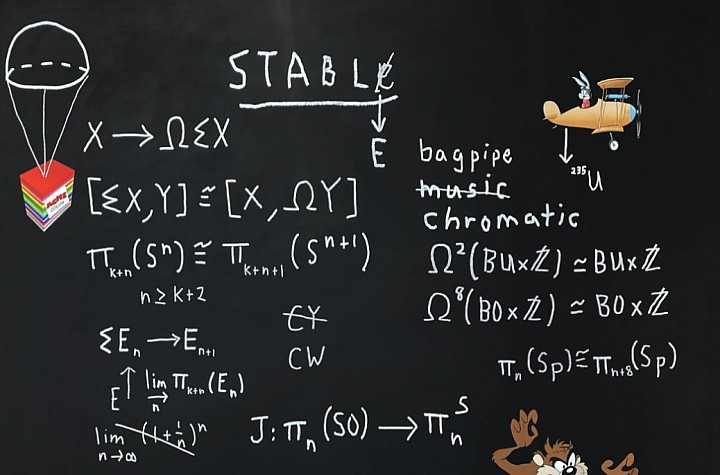 STABLE
E
X → ΩΣX
[ΣX,Y] ≅ [X, ΩY]
π_{k+n}(Sⁿ) ≅ π_{k+n+1}(Sⁿ⁺¹)
n ≥ k+2
ΣE_n → E_{n+1}
E ↑ lim_{n→} π_{k+n}(E_n)
lim_{n→∞} (1+1/n)ⁿ
CY
CW
J: π_n(SO) → π_n^S
²³⁵U
bagpipe
music
chromatic
Ω²(BU×ℤ) ≃ BU×ℤ
Ω⁸(BO×ℤ) ≃ BO×ℤ
π_n(Sp) ≅ π_{n+8}(Sp)
ACME